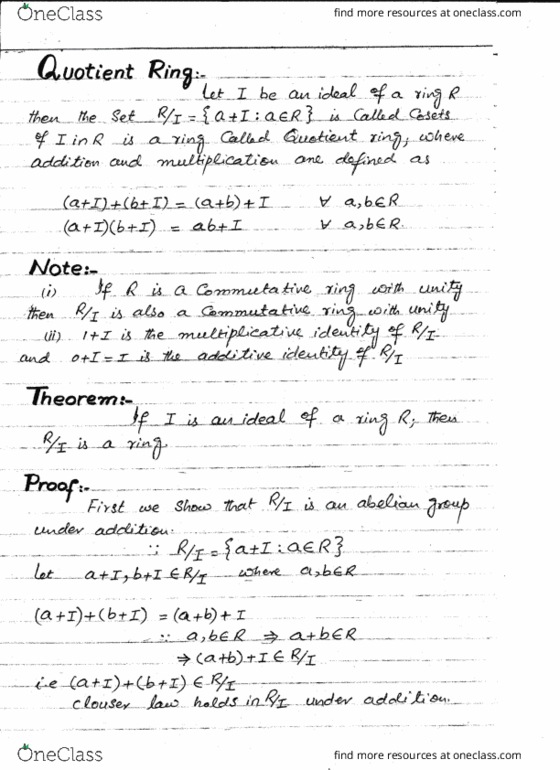 OneClass find more resources at oneclass.com
Quotient Ring:-
Let I be an ideal of a ring R
then the set R/I = {a+I : a∈R} is called Cosets
of I in R is a ring called Quotient ring, where
addition and multiplication are defined as
(a+I)+(b+I) = (a+b)+I ∀ a,b∈R
(a+I)(b+I) = ab+I ∀ a,b∈R.
Note:-
(i) If R is a Commutative ring with unity
then R/I is also a Commutative ring with unity
(ii) 1+I is the multiplicative identity of R/I.
and 0+I=I is the additive identity of R/I
Theorem:-
If I is an ideal of a ring R, then
R/I is a ring.
Proof:-
First we show that R/I is an abelian group
under addition.
∵ R/I = {a+I : a∈R}
Let a+I, b+I ∈ R/I where a,b∈R
(a+I)+(b+I) = (a+b)+I
∵ a,b∈R ⇒ a+b∈R
⇒ (a+b)+I ∈ R/I
i.e (a+I)+(b+I) ∈ R/I
clouser law holds in R/I under addition.
OneClass find more resources at oneclass.com